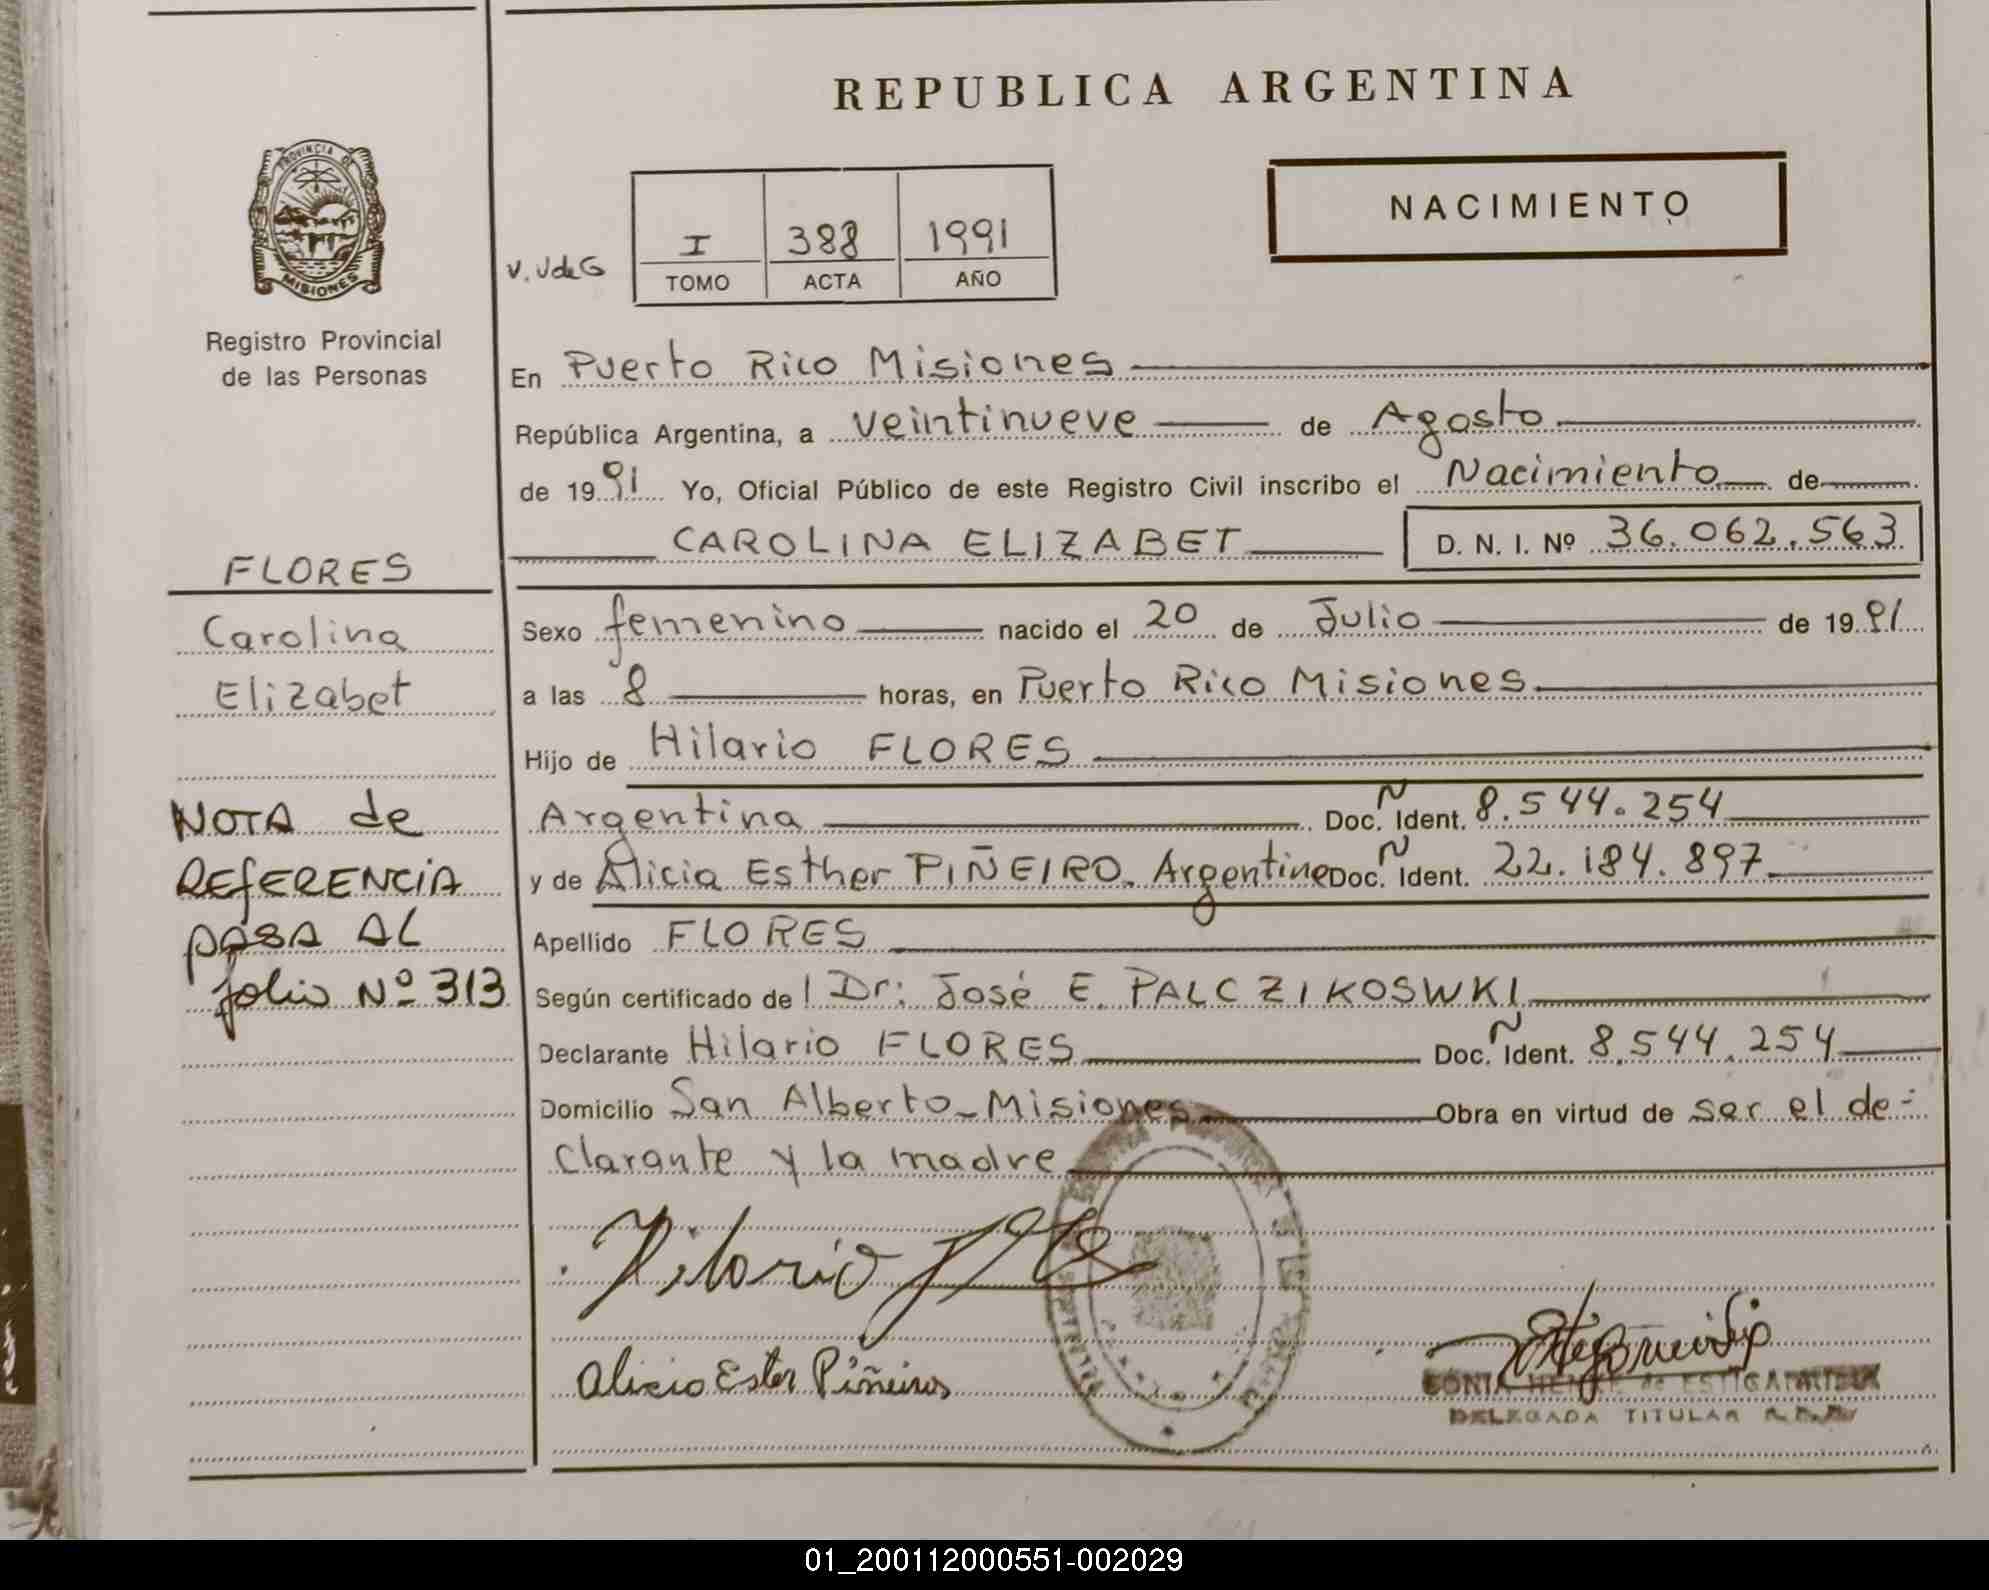 REPUBLICA ARGENTINA
PROVINCIA DE
MISIONES
Registro Provincial
de las Personas
NACIMIENTO
V. UdeG
I 388 1991
TOMO ACTA AÑO
En Puerto Rico Misiones
República Argentina, a veintinueve de Agosto
de 1991 Yo, Oficial Público de este Registro Civil inscribo el Nacimiento de
CAROLINA ELIZABET D. N. I. Nº 36.062.563
FLORES
Carolina
Elizabet
Sexo femenino nacido el 20 de Julio de 1991
a las 8 horas, en Puerto Rico Misiones
Hijo de Hilario FLORES
Argentina Doc. Ident. 8.544.254
y de Alicia Esther PIÑEIRO. Argentina Doc. Ident. 22.184.897
Apellido FLORES
Según certificado de Dr: José E. PALCZIKOSWKI
Declarante Hilario FLORES Doc. Ident. 8.544.254
Domicilio San Alberto-Misiones Obra en virtud de ser el de-
clarante y la madre
NOTA de
REFERENCIA
PASA AL
folio Nº 313
Hilario
Alicia Ester Piñeiro
SONIA de
DELEGADA TITULAR
01_200112000551-002029